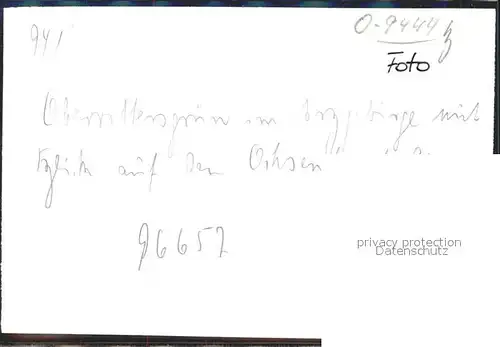 94/
O-9444
Foto
Oberrittersgrün im Erzgebirge mit
Blick auf den Ochsen
96657
privacy protection
Datenschutz